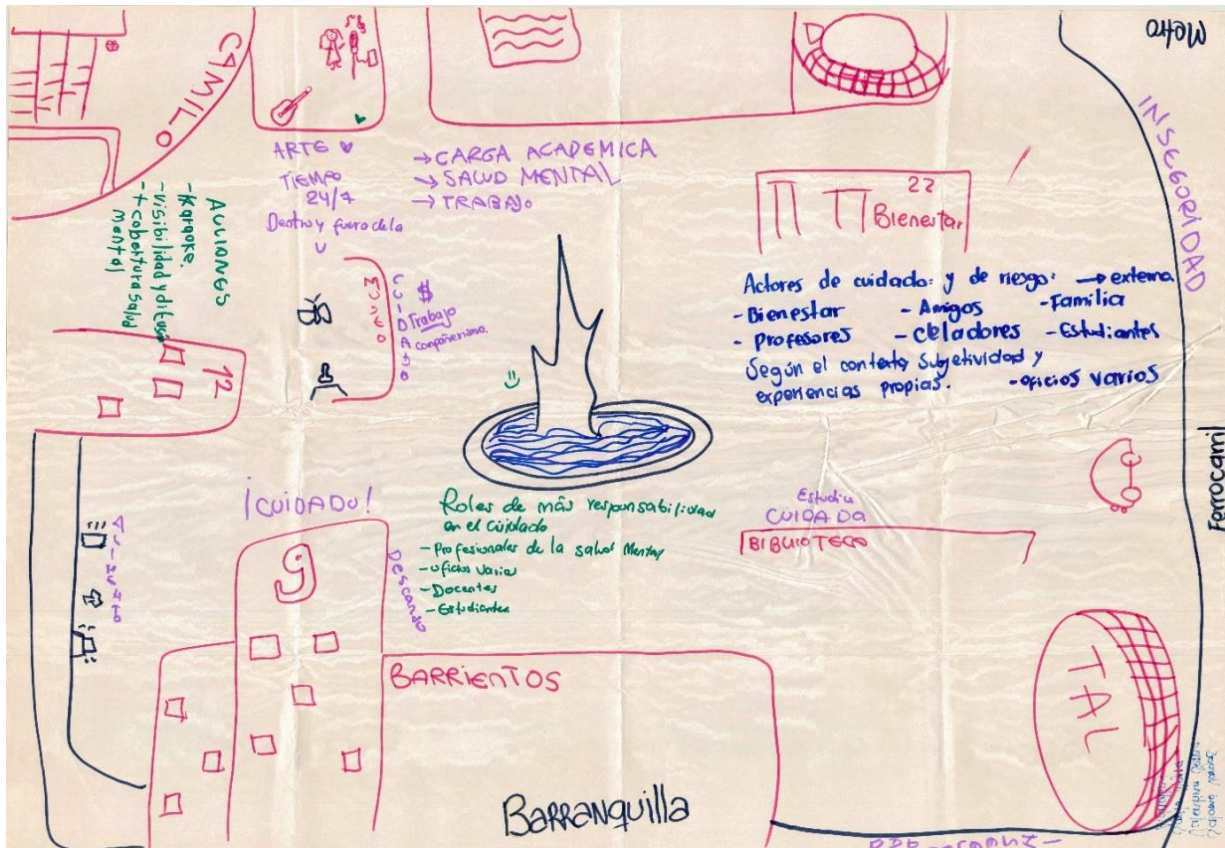 Metro
INSEGURIDAD
CAMILO
ARTE
TIEMPO
24/7
Dentro y fuera de la
U
→ CARGA ACADEMICA
→ SALUD MENTAL
→ TRABAJO
22
Bienestar
ACCIONES
- Karaoke.
- visibilidad y difusión
- + cobertura salud
mental
$
Trabajo
Compañerismo.
CUIDADO
MUSEO
Actores de cuidado: y de riesgo: → externa
- Bienestar - Amigos - Familia
- Profesores - Celadores - Estudiantes
Según el contexto, subjetividad y
experiencias propias. - oficios varios
12
Ferrocarril
¡CUIDADO!
9
Descanso
Roles de más responsabilidad
en el cuidado
- Profesionales de la salud Mental
- oficios varios
- Docentes
- Estudiantes
Estudiu
CUIDADA
BIBLIOTECO
BARRIENTOS
TAL
Barranquilla